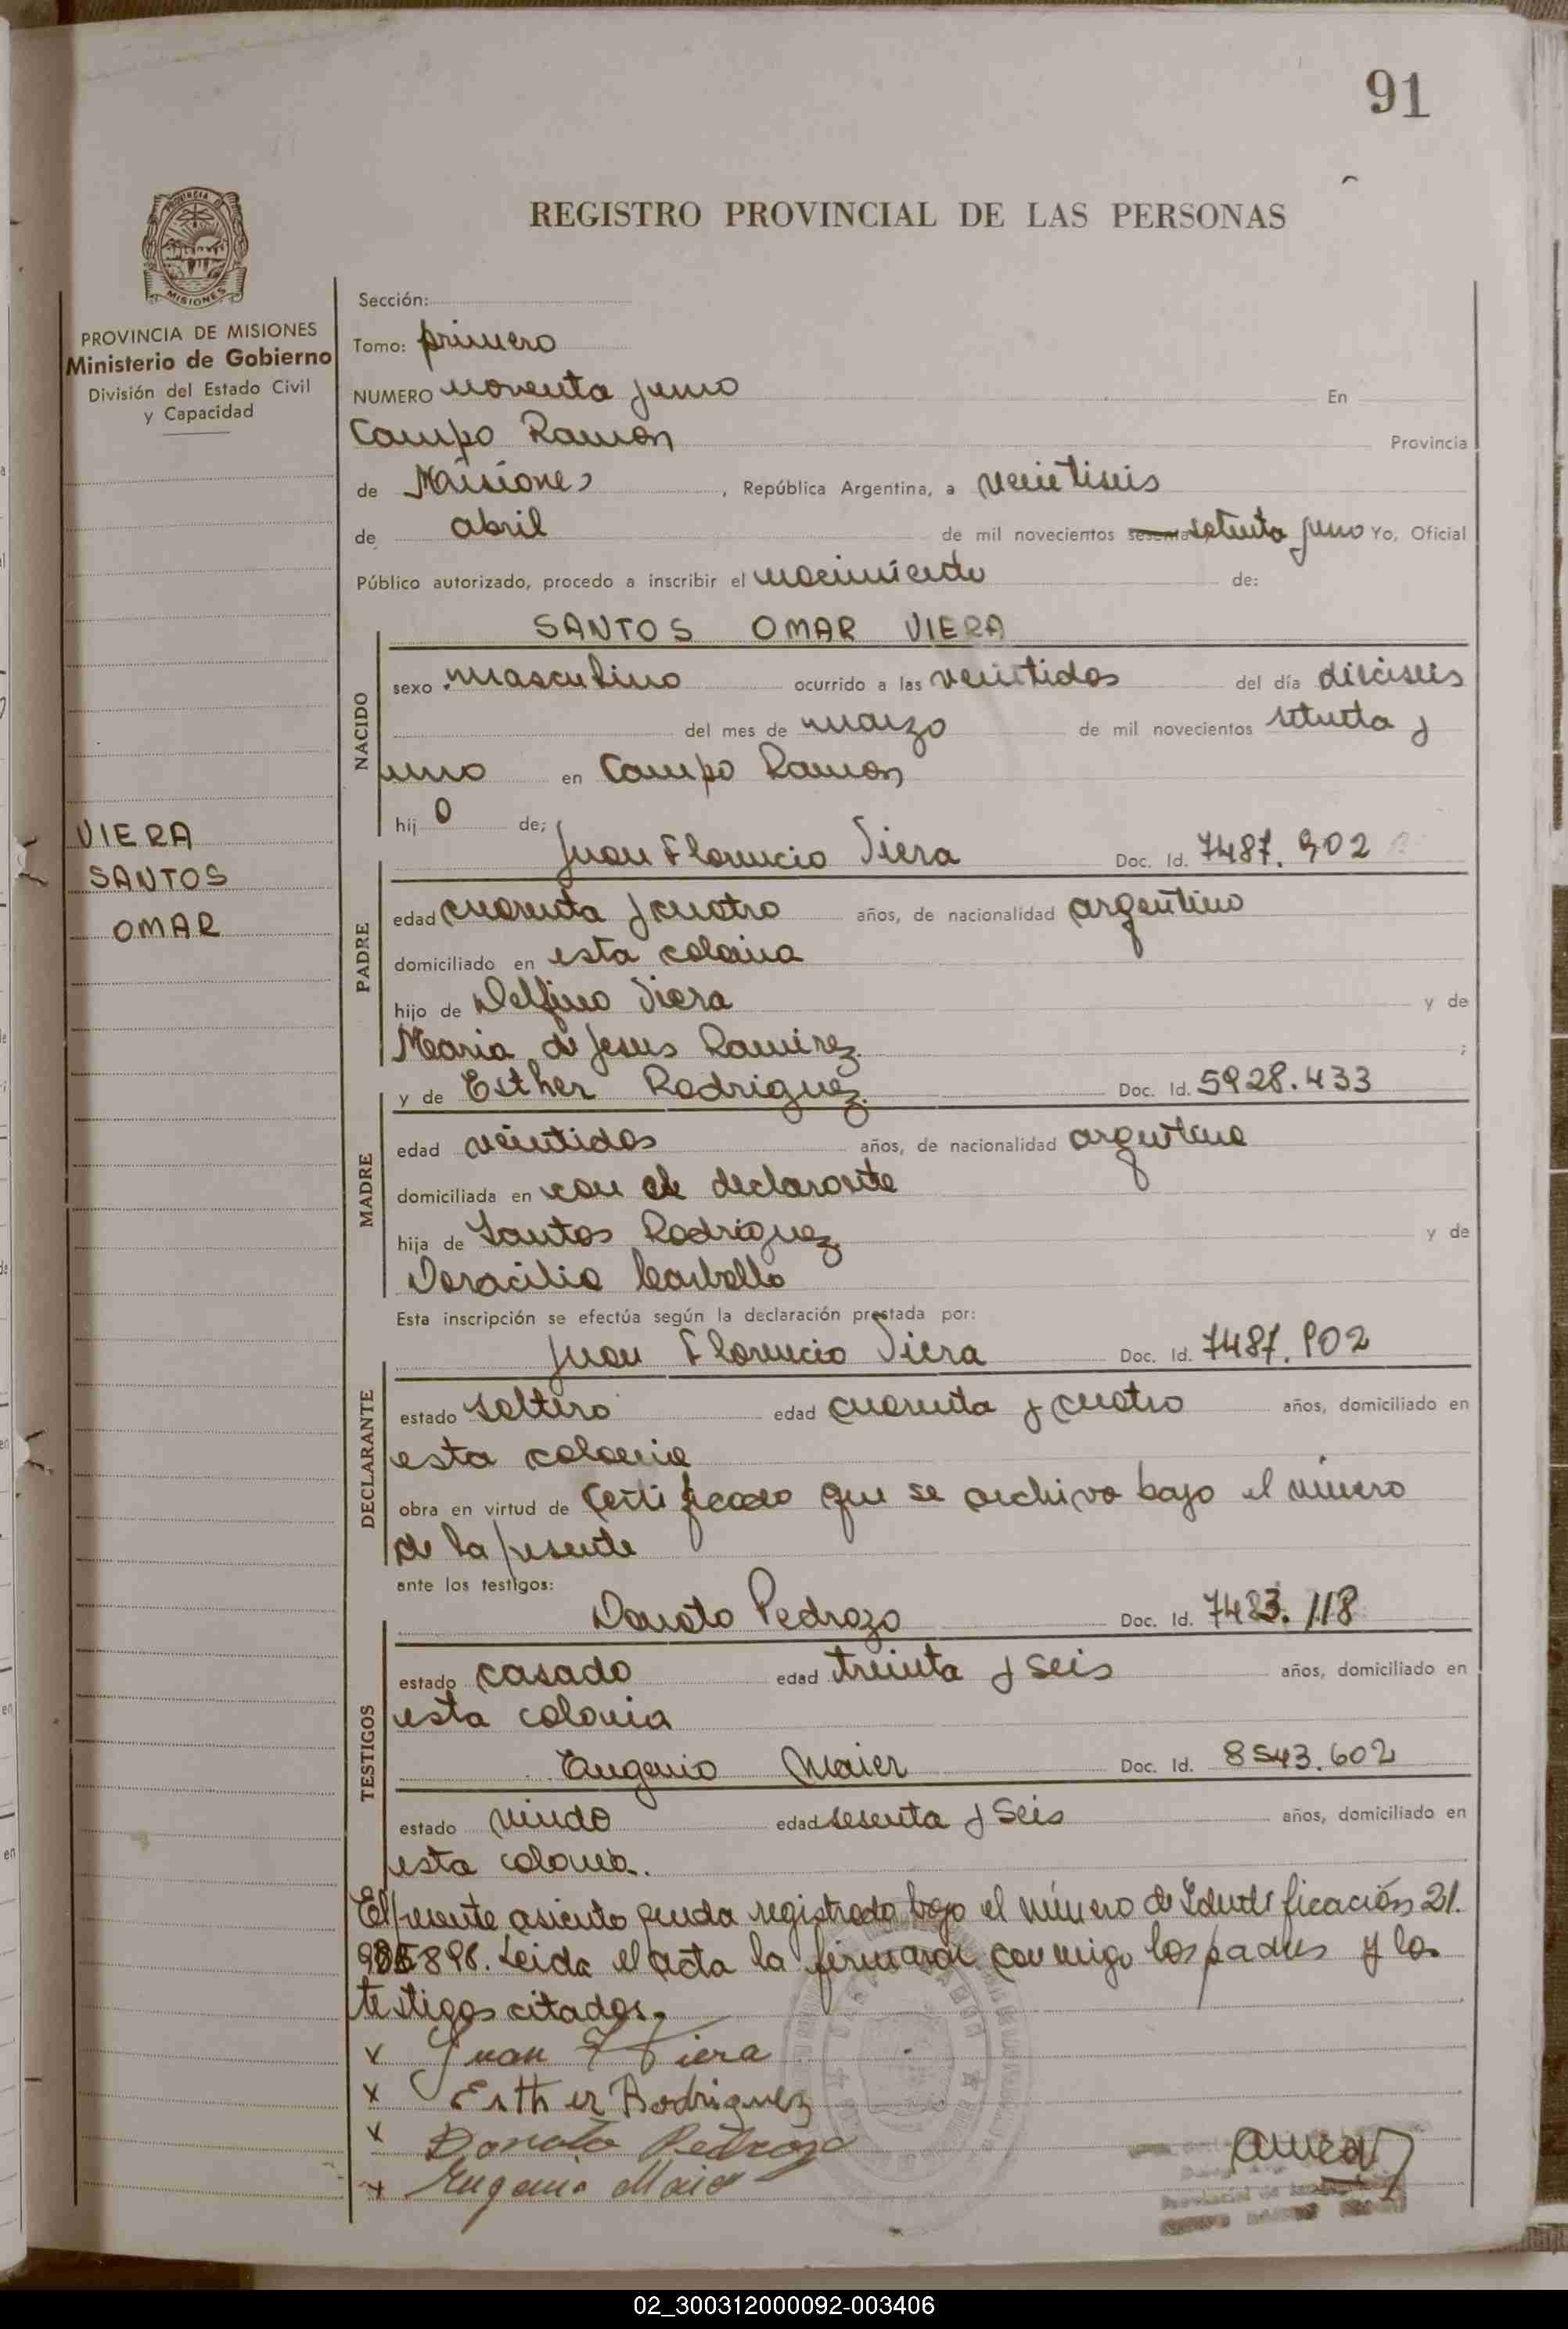 91
REGISTRO PROVINCIAL DE LAS PERSONAS
PROVINCIA DE MISIONES
Ministerio de Gobierno
División del Estado Civil
y Capacidad
VIERA
SANTOS
OMAR
Sección:
Tomo: primero
NUMERO noventa y uno En
Campo Ramon Provincia
de Misiones, República Argentina, a veintiseis
de abril de mil novecientos sesenta setenta y uno Yo, Oficial
Público autorizado, procedo a inscribir el nacimiento de:
SANTOS OMAR VIERA
NACIDO
sexo masculino ocurrido a las veintidos del día dieciseis
del mes de marzo de mil novecientos setenta y
uno en Campo Ramon
hijo de;
Juan Florencio Viera Doc. Id. 7487.902
PADRE
edad cuarenta y cuatro años, de nacionalidad argentino
domiciliado en esta colonia
hijo de Delfino Viera y de
Maria de Jesus Ramirez ;
y de Esther Rodriguez Doc. Id. 5928.433
MADRE
edad veintidos años, de nacionalidad argentina
domiciliada en con el declarante
hija de Santos Rodriguez y de
Doracilia Carballo
Esta inscripción se efectúa según la declaración prestada por:
Juan Florencio Viera Doc. Id. 7487.902
DECLARANTE
estado soltero edad cuarenta y cuatro años, domiciliado en
esta colonia
obra en virtud de certificado que se archiva bajo el número
de la presente
ante los testigos:
Donato Pedrozo Doc. Id. 7483.118
TESTIGOS
estado casado edad treinta y seis años, domiciliado en
esta colonia
Eugenio Maier Doc. Id. 8543.602
estado viudo edad sesenta y seis años, domiciliado en
esta colonia.
El presente asiento queda registrado bajo el número de Identificación 21.
896. Leida el acta la firmaron conmigo los padres y los
testigos citados.
x Juan F Viera
x Esther Rodriguez
x Donato Pedrozo
x Eugenio Maier
02_300312000092-003406